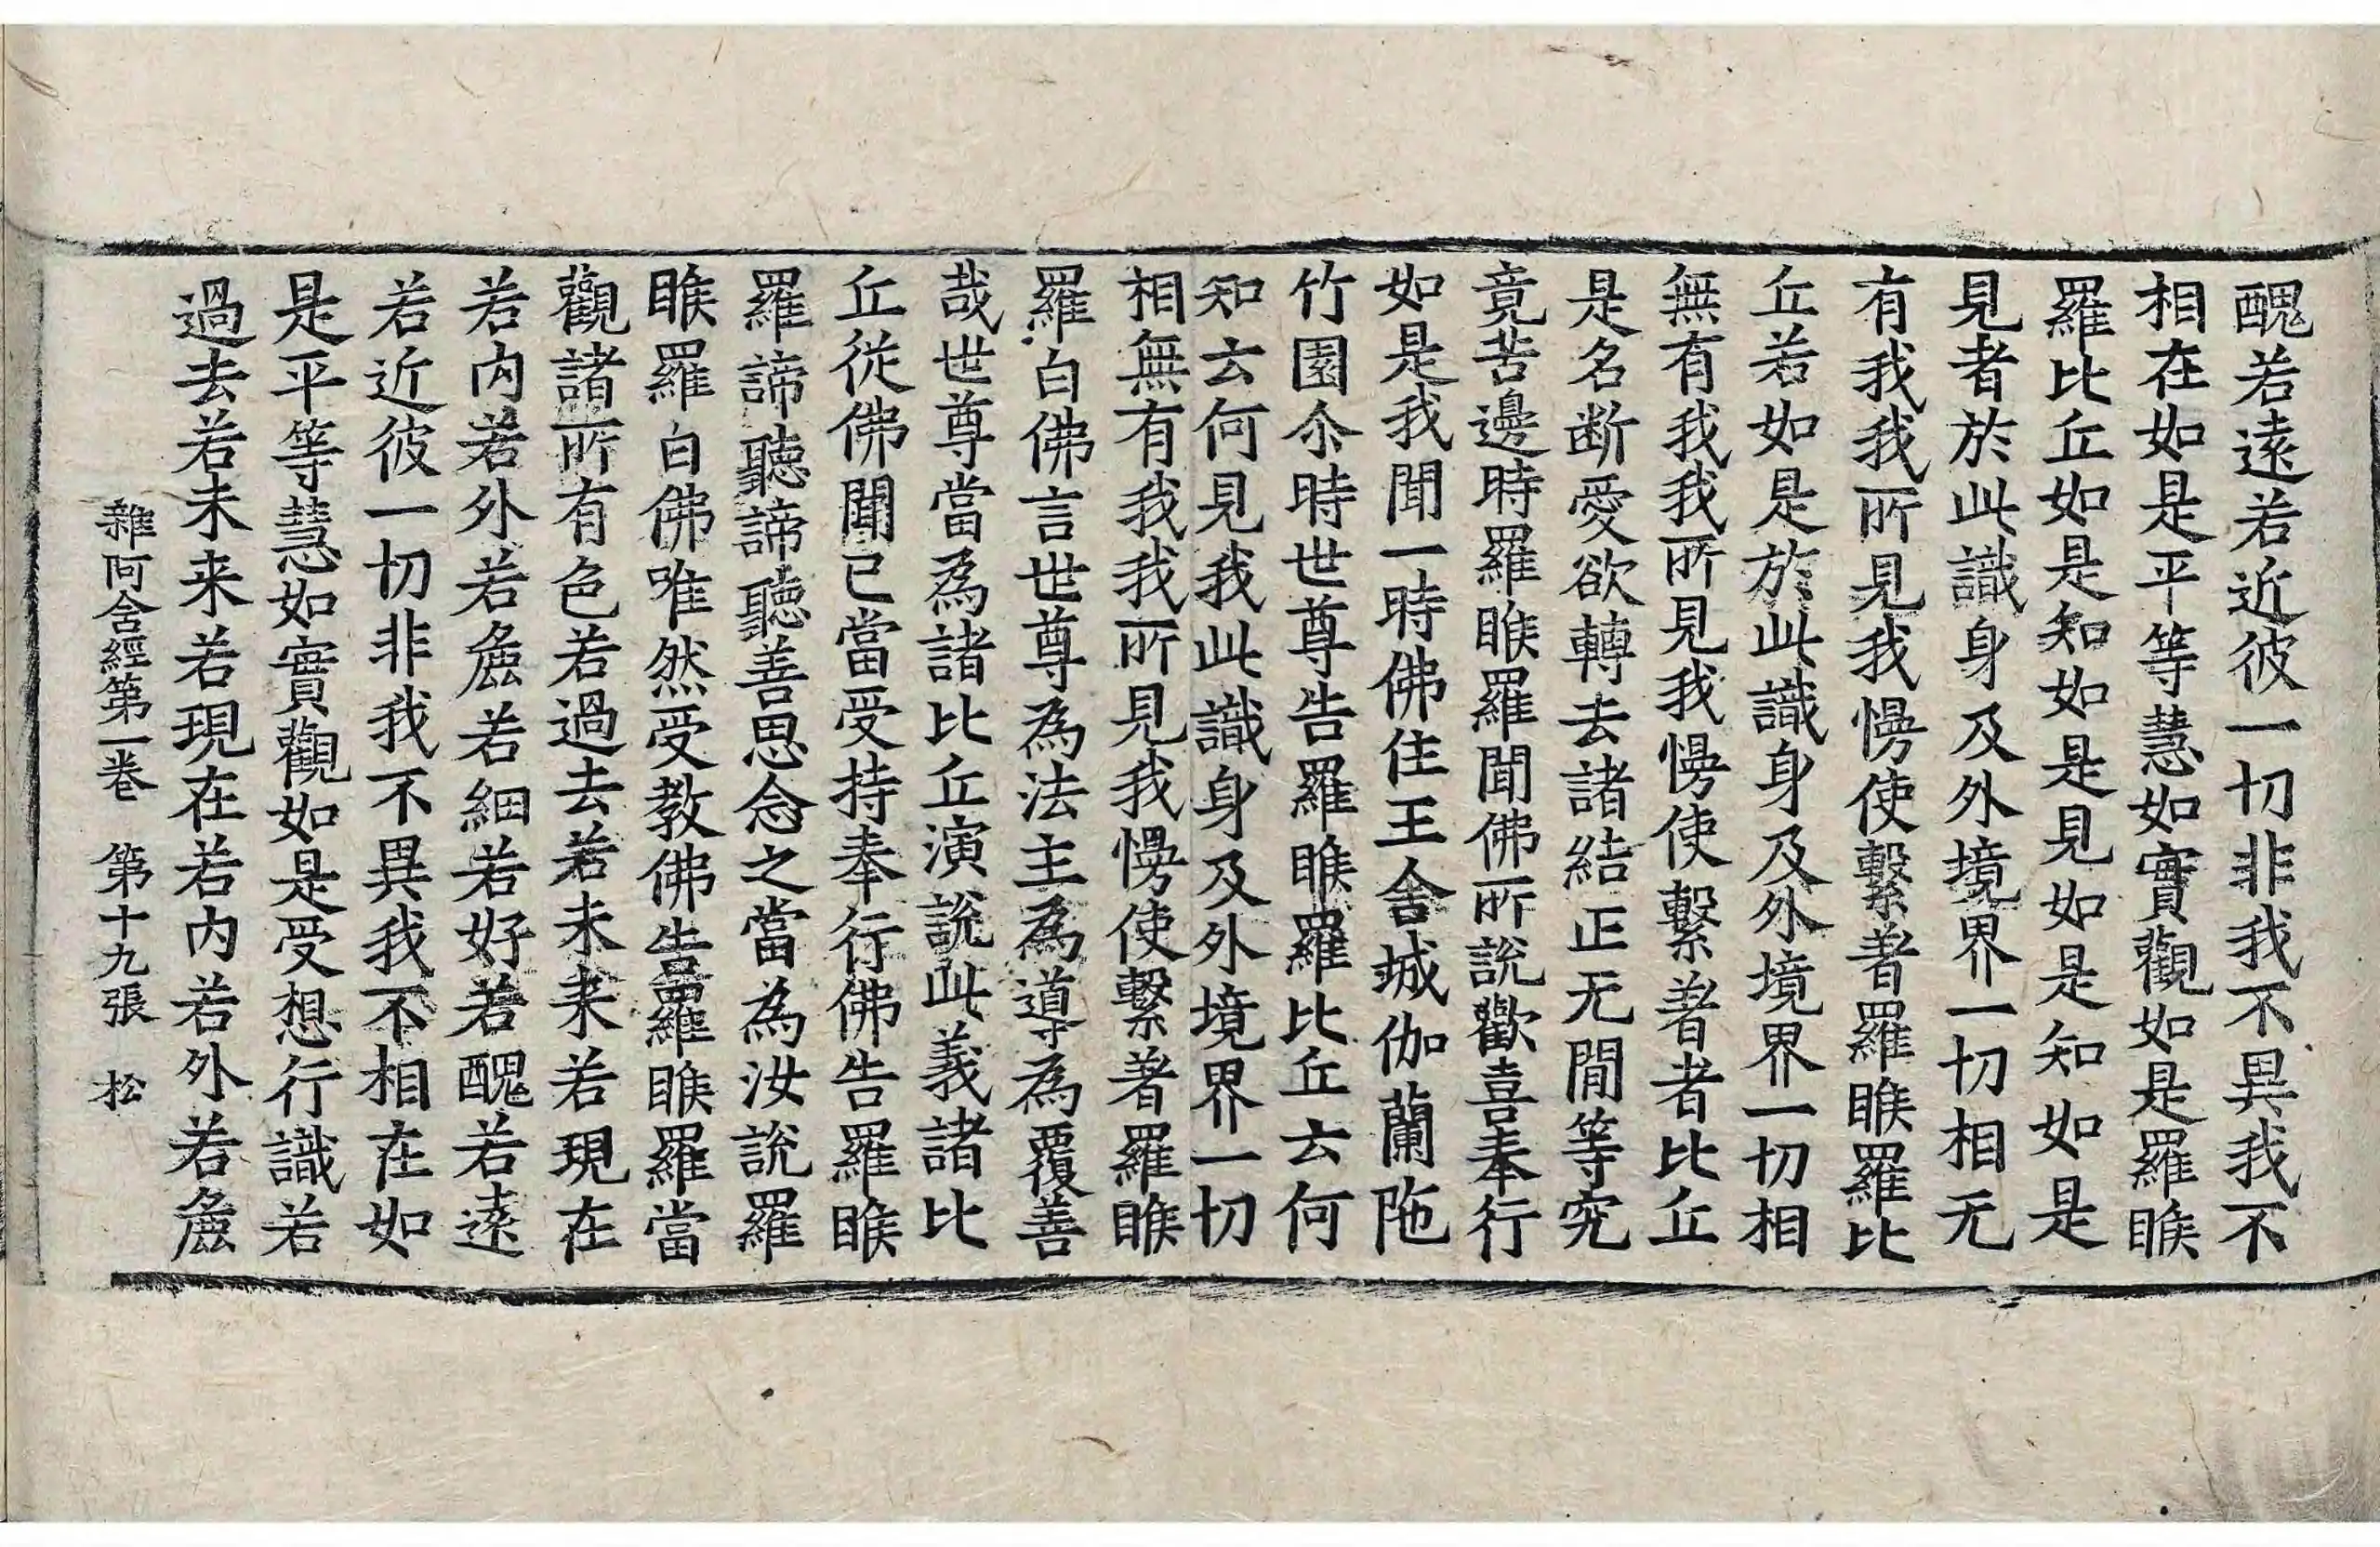 醜若遠若近彼一切非我不異我不
相在如是平等慧如實觀如是羅睺
羅比丘如是知如是見如是知如是
見者於此識身及外境界一切相无
有我我所見我慢使繫著羅睺羅比
丘若如是於此識身及外境界一切相
無有我我所見我慢使繫著者比丘
是名断愛欲轉去諸結正无閒等究
竟苦邊時羅睺羅聞佛所說歡喜奉行
如是我聞一時佛住王舍城伽蘭陁
竹園尒時世尊告羅睺羅比丘云何
知云何見我此識身及外境界一切
相無有我我所見我慢使繫著羅睺
羅白佛言世尊為法主為導為覆善
哉世尊當為諸比丘演說此義諸比
丘從佛聞已當受持奉行佛告羅睺
羅諦聽諦聽善思念之當為汝說羅
睺羅白佛唯然受教佛告羅睺羅當
觀諸所有色若過去若未来若現在
若内若外若麁若細若好若醜若遠
若近彼一切非我不異我不相在如
是平等慧如實觀如是受想行識若
過去若未来若現在若内若外若麁
雜阿含經第一卷　第十九張　松